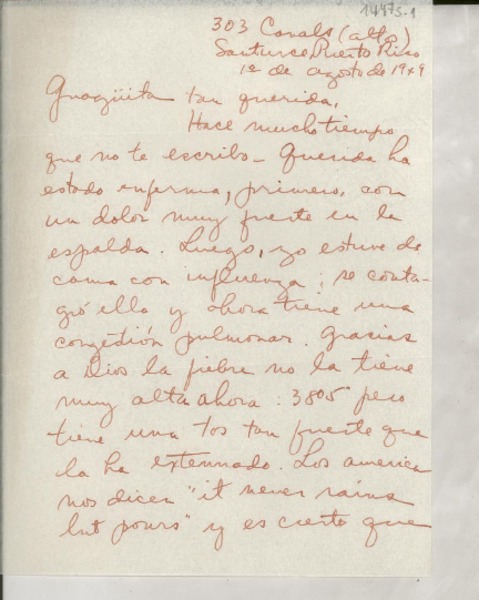 14473-1
303 Canals (alto)
Santurce, Puerto Rico
1º de agosto de 1949
Guagüita tan querida,
Hace mucho tiempo
que no te escribo - Querida ha
estado enferma, primero, con
un dolor muy fuerte en la
espalda. Luego, yo estuve de
cama con influenza; se conta-
gió ella y ahora tiene una
congestión pulmonar. Gracias
a Dios la fiebre no la tiene
muy alta ahora: 3805 pero
tiene una tos tan fuerte que
la ha extenuado. Los america
nos dicen "it never rains
but pours" y es cierto que